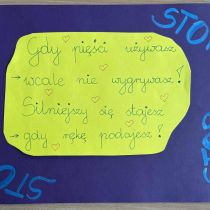 STOP
Gdy pięści używasz
→ wcale nie wygrywasz!
Silniejszy się stajesz
→ gdy rękę podajesz!
STOP
STO